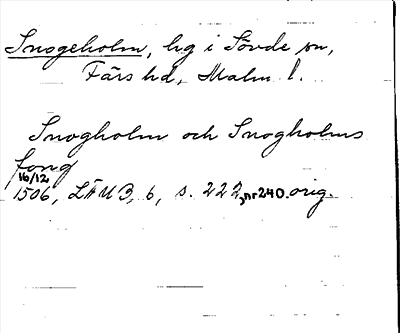 Snogeholm, hg i Sövde sn,
Färs hd, Malm. l.
Snogholm och Snogholms
fong
16/12
1506, LÄUB, 6, s. 222, nr 240. orig.